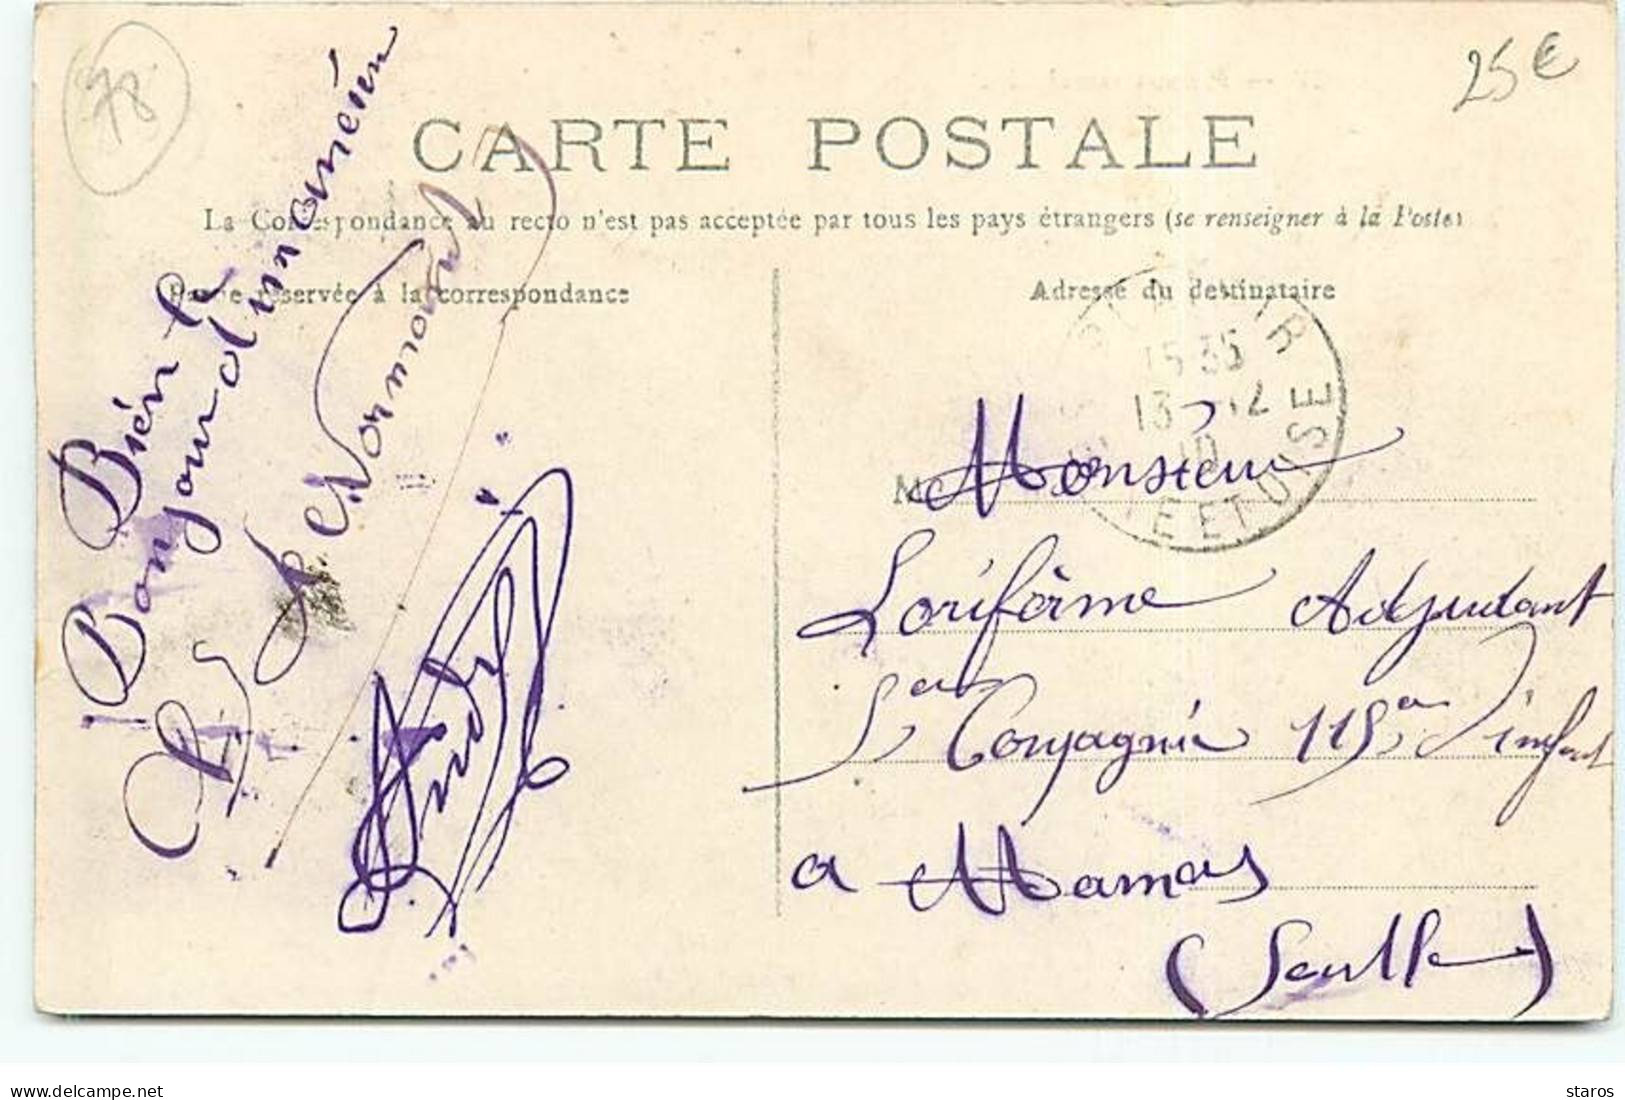 78
25 €
CARTE POSTALE
La Correspondance au recto n'est pas acceptée par tous les pays étrangers (se renseigner à la Poste)
Partie réservée à la correspondance
Adresse du destinataire
15 35
13 - 12
10
SEINE ET OISE
Bien le
Bonjour d'un ancien
Normand
André
M
Monsieur
Adjudant
5e Compagnie 115e d'infant
a Mamers
(Sarthe)
staros